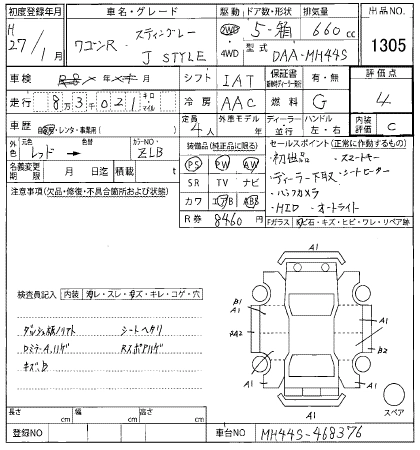 初度登録年月 車名・グレード 駆動 ドア数・形状 排気量 出品NO
H 27/1月 ワゴンR スティングレー J STYLE 2WD 4WD 5・箱 660 cc 1305
型式 DAA-MH44S
車検 シフト IAT 保証書 有・無 評価点
走行 8万3千021 キロ マイル 冷房 AAC 燃料 G 4
車歴 自家用・レンタ・事業用( ) 定員 4人 外車モデル 年 ディーラー 並行 ハンドル 左・右 内装評価 C
外色 元色 レッド → 色替 カラーNO. ZLB
装備品(純正品に限る) セールスポイント(正常に作動するもの)
名義変更期限 月 日迄 積載 t
PS PW AW ・初世  ・スマートキー
注意事項(欠品・修復・不具合箇所および状態)
SR TV ナビ ・ディーラー下取 ・シートヒーター
カワ エアB ABS ・バックカメラ
R券 8460円 ・HID ・オートライト
Fガラス 飛石・キズ・ヒビ・ワレ・リペア跡
A1
検査員記入 内装 汚レ・スレ・キズ・キレ・コゲ・穴
B1 A1
A1
ダッシュ板ノリアト シートヘタリ
AA2
DミラーA,ハゲ RスポアハゲB2
キズ、D
A1 A1
A1
スペア
長さ cm 幅 cm 高さ cm
登録NO 車台NO MH44S-468376